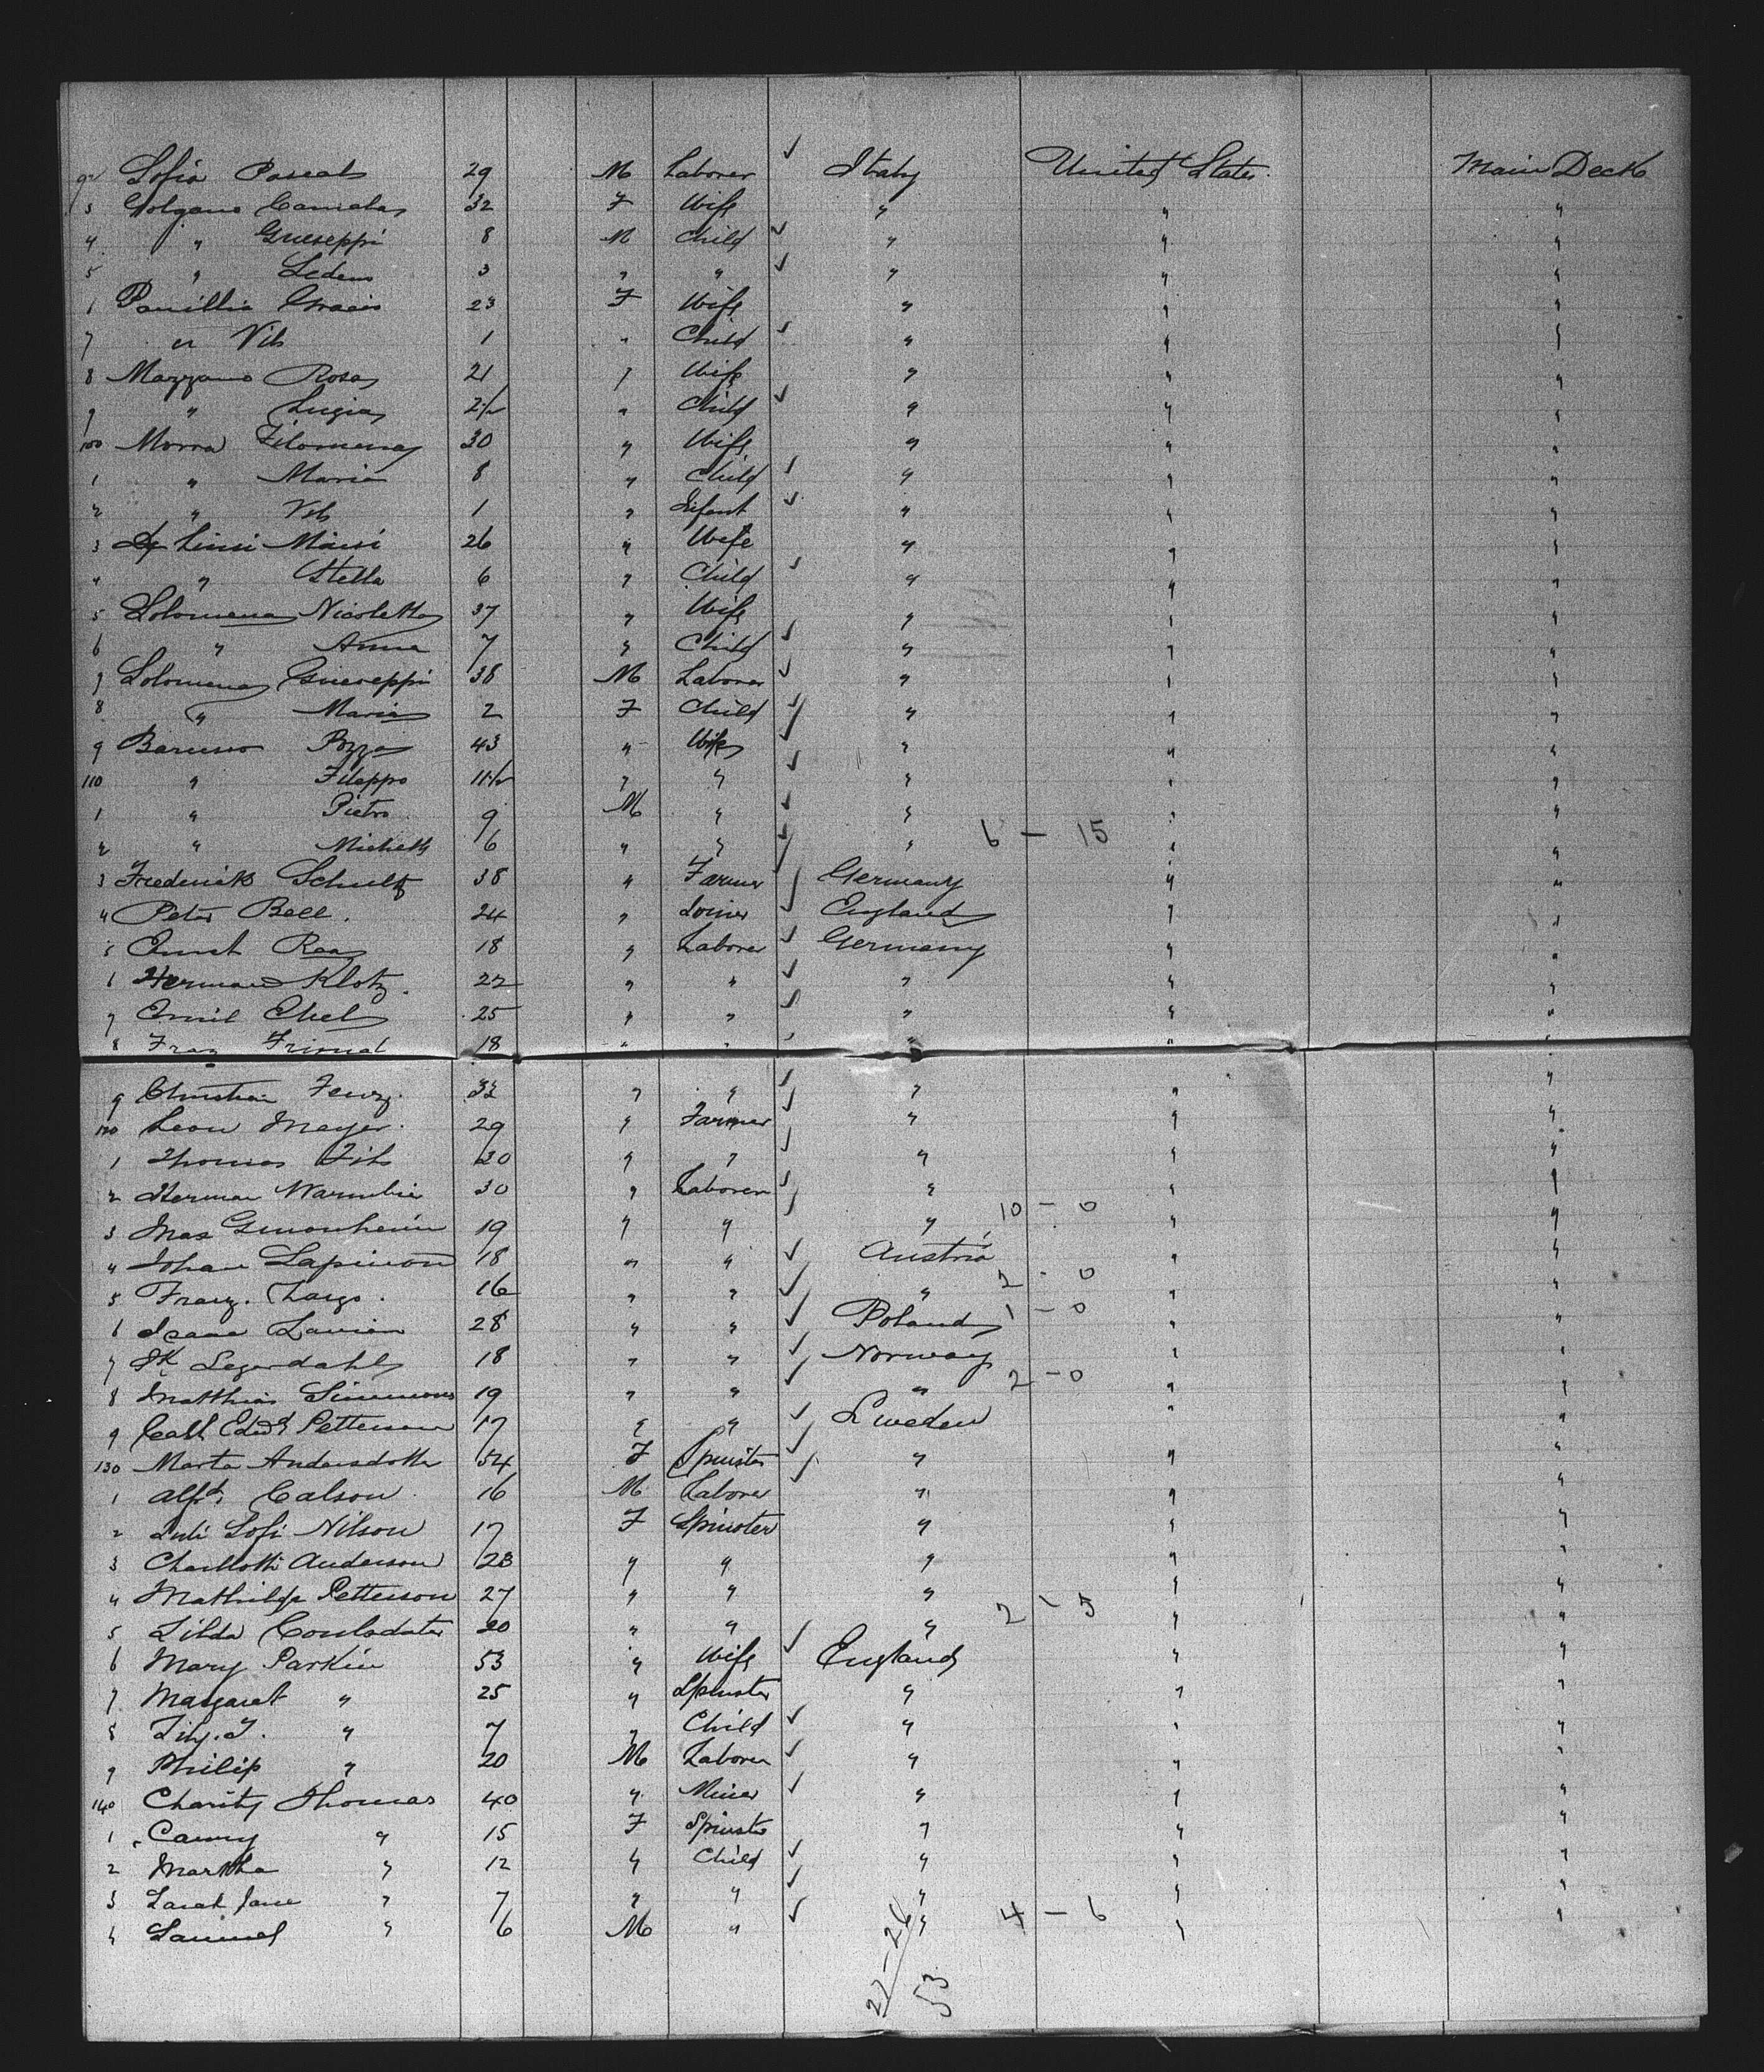 92 Sofia Pascal 29 M Laborer ✓ Italy United States Main Deck
3 Golgano Carmela 32 F Wife " " "
4 " Guiseppi 8 M Child ✓ " " "
5 " 3 " " ✓ " " "
1 Gracis 23 F Wife " " "
7 " Vito 1 " Child ✓ " " "
8 Mazzano Rosa 21 " Wife " " "
9 " Lugia 2 1/2 " Child ✓ " " "
100 Morra Filomena 30 " Wife " " "
1 " Maria 8 " Child ✓ " " "
2 " Vito 1 " Infant ✓ " " "
3 26 " Wife " " "
4 " Stella 6 " Child ✓ " " "
5 Solomena Nicoletta 37 " Wife " " "
6 " Anna 7 " Child ✓ " " "
7 Solomena Guiseppi 38 M Laborer ✓ " " "
8 " Maria 2 F Child ✓ " " "
9 43 " Wife ✓ " " "
110 " Filoppo 11 1/2 " " ✓ " " "
1 " Pietro 9 M " ✓ " " "
2 " 6 " " ✓ " 6 - 15 " "
3 Frederick Schultz 38 " Farmer ✓ Germany " "
4 Peter Bell . 24 " Joiner ✓ England " "
5 Ernst 18 " Laborer ✓ Germany " "
1 Herman Klotz . 22 " " ✓ " " "
7 Emil 25 " " ✓ " " "
8 18 " " ✓ " " "
9 Christian 33 " " ✓ " " "
120 Leon Meyer . 29 " Farmer ✓ " " "
1 Thomas 30 " " ✓ " " "
2 Herman 30 " Laborer ✓ " " "
3 Max 19 " " ✓ " 10 - 0 " "
4 Johan 18 " " ✓ Austria " "
5 Franz . 16 " " ✓ " 2 - 0 " "
6 Isaac 28 " " ✓ Poland 1 - 0 " "
7 Segerdahl 18 " " ✓ Norway " "
8 Matthias Simmons 19 " " ✓ " 2 - 0 " "
9 Carl Edwd Petterson 17 " " ✓ Sweden " "
130 Marta Andersdotter 54 F Spinster ✓ " " "
1 Alfd. Calson 16 M Laborer ✓ " " "
2 Sofi Nilson 17 F Spinster " " "
3 Charlotti Anderson 23 " " " " "
4 Mathilda Petterson 27 " " " " "
5 20 " " " 2 - 5 " "
6 Mary Parkin 53 " Wife ✓ England " "
7 Margaret " 25 " Spinster " " "
8 " 7 " Child ✓ " " "
9 Philip " 20 M Laborer ✓ " " "
140 Charity Thomas 40 " Miner ✓ " " "
1 " 15 F Spinster " " "
2 Martha " 12 " Child ✓ " " "
3 Sarah Jane " 7 " " ✓ " " "
4 Samuel " 6 M " ✓ " 4 - 6 " "
27 - 26
53